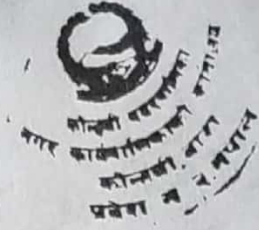 कोल्हवी नगरपालिका
नगर कार्यपालिकाको कार्यालय
कोल्हवी, बारा
प्रदेश नं २ नेपाल